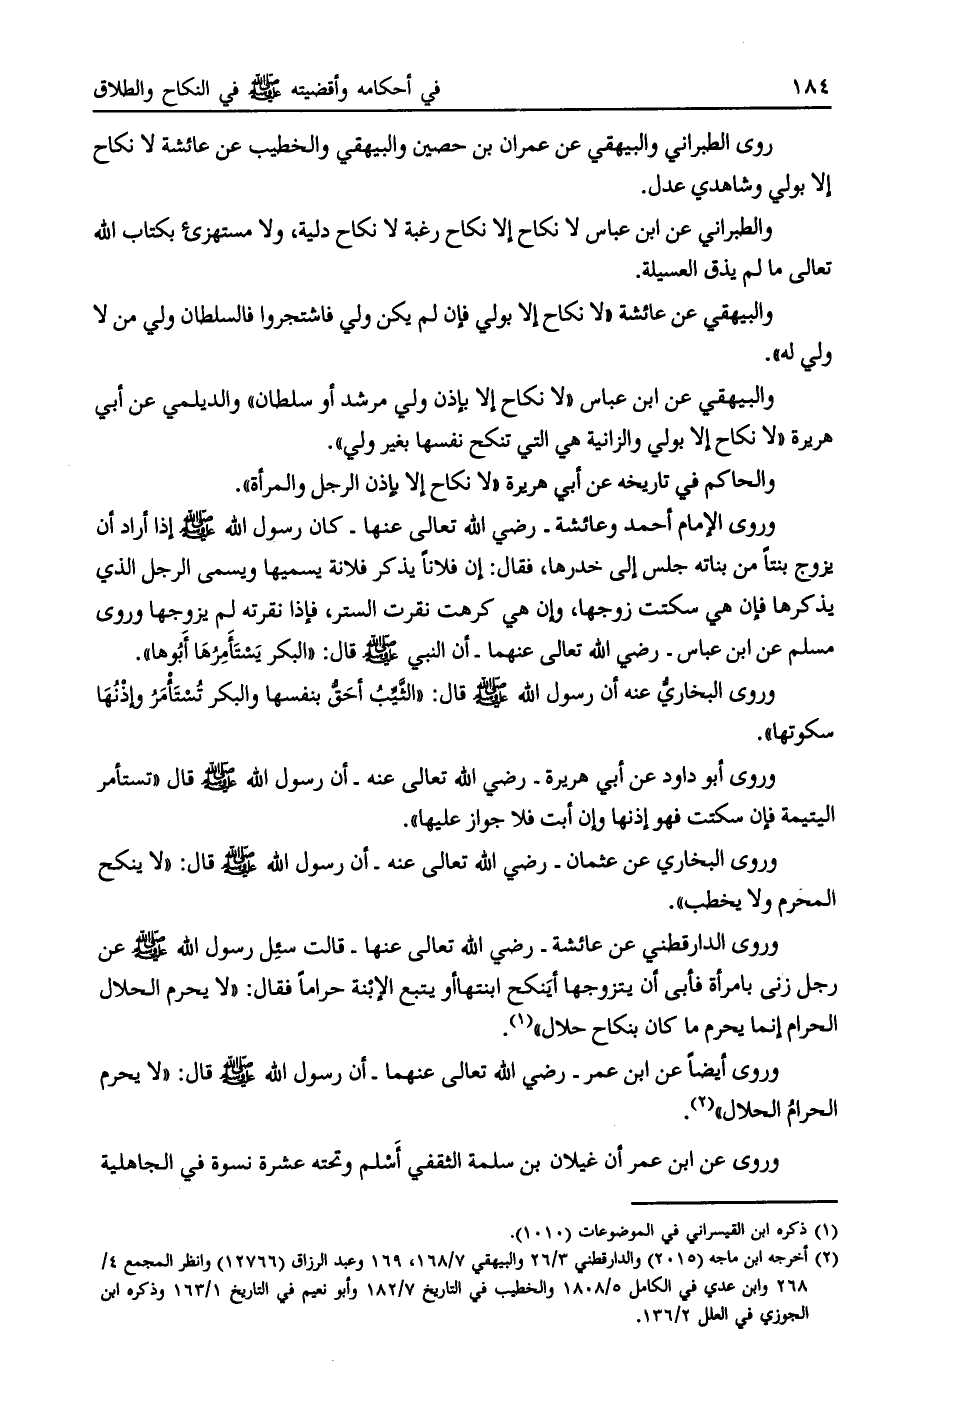 ١٨٤ في أحكامه وأقضيته ﷺ في النكاح والطلاق
روى الطبراني والبيهقي عن عمران بن حصين والبيهقي والخطيب عن عائشة لا نكاح
إلا بولي وشاهدي عدل.
والطبراني عن ابن عباس لا نكاح إلا نكاح رغبة لا نكاح دلية، ولا مستهزئ بكتاب الله
تعالى ما لم يذق العسيلة.
والبيهقي عن عائشة «لا نكاح إلا بولي فإن لم يكن ولي فاشتجروا فالسلطان ولي من لا
ولي له».
والبيهقي عن ابن عباس «لا نكاح إلا بإذن ولي مرشد أو سلطان» والديلمي عن أبي
هريرة «لا نكاح إلا بولي والزانية هي التي تنكح نفسها بغير ولي».
والحاكم في تاريخه عن أبي هريرة «لا نكاح إلا بإذن الرجل والمرأة».
وروى الإمام أحمد وعائشة ـ رضي الله تعالى عنها ـ كان رسول الله ﷺ إذا أراد أن
يزوج بنتاً من بناته جلس إلى خدرها، فقال: إن فلاناً يذكر فلانة يسميها ويسمى الرجل الذي
يذكرها فإن هي سكتت زوجها، وإن هي كرهت نقرت الستر، فإذا نقرته لم يزوجها وروى
مسلم عن ابن عباس ـ رضي الله تعالى عنهما ـ أن النبي ﷺ قال: «البكر يَسْتَأَمِرُهَا أَبُوها».
وروى البخاريُّ عنه أن رسول الله ﷺ قال: «الثَّيِّبُ أحَقُّ بنفسها والبكر تُسْتَأْمَرُ وإذْنُهَا
سكوتها».
وروى أبو داود عن أبي هريرة ـ رضي الله تعالى عنه ـ أن رسول الله ﷺ قال «تستأمر
اليتيمة فإن سكتت فهو إذنها وإن أبت فلا جواز عليها».
وروى البخاري عن عثمان ـ رضي الله تعالى عنه ـ أن رسول الله ﷺ قال: «لا ينكح
المحرم ولا يخطب».
وروى الدارقطني عن عائشة ـ رضي الله تعالى عنها ـ قالت سئِل رسول الله ﷺ عن
رجل زنى بامرأة فأبى أن يتزوجها أيَنكح ابنتهاأو يتبع الإبْنة حراماً فقال: «لا يحرم الحلال
الحرام إنما يحرم ما كان بنكاح حلال»(١).
وروى أيضاً عن ابن عمر ـ رضي الله تعالى عنهما ـ أن رسول الله ﷺ قال: «لا يحرم
الحرامُ الحلال»(٢).
وروى عن ابن عمر أن غيلان بن سلمة الثقفي أَسْلم وتحته عشرة نسوة في الجاهلية
(١) ذكره ابن القيسراني في الموضوعات (١٠١٠).
(٢) أخرجه ابن ماجه (٢٠١٥) والدارقطني ٢٦/٣ والبيهقي ١٦٨/٧، ١٦٩ وعبد الرزاق (١٢٧٦٦) وانظر المجمع ٤/
٢٦٨ وابن عدي في الكامل ١٨٠٨/٥ والخطيب في التاريخ ١٨٢/٧ وأبو نعيم في التاريخ ١٦٣/١ وذكره ابن
الجوزي في العلل ١٣٦/٢.